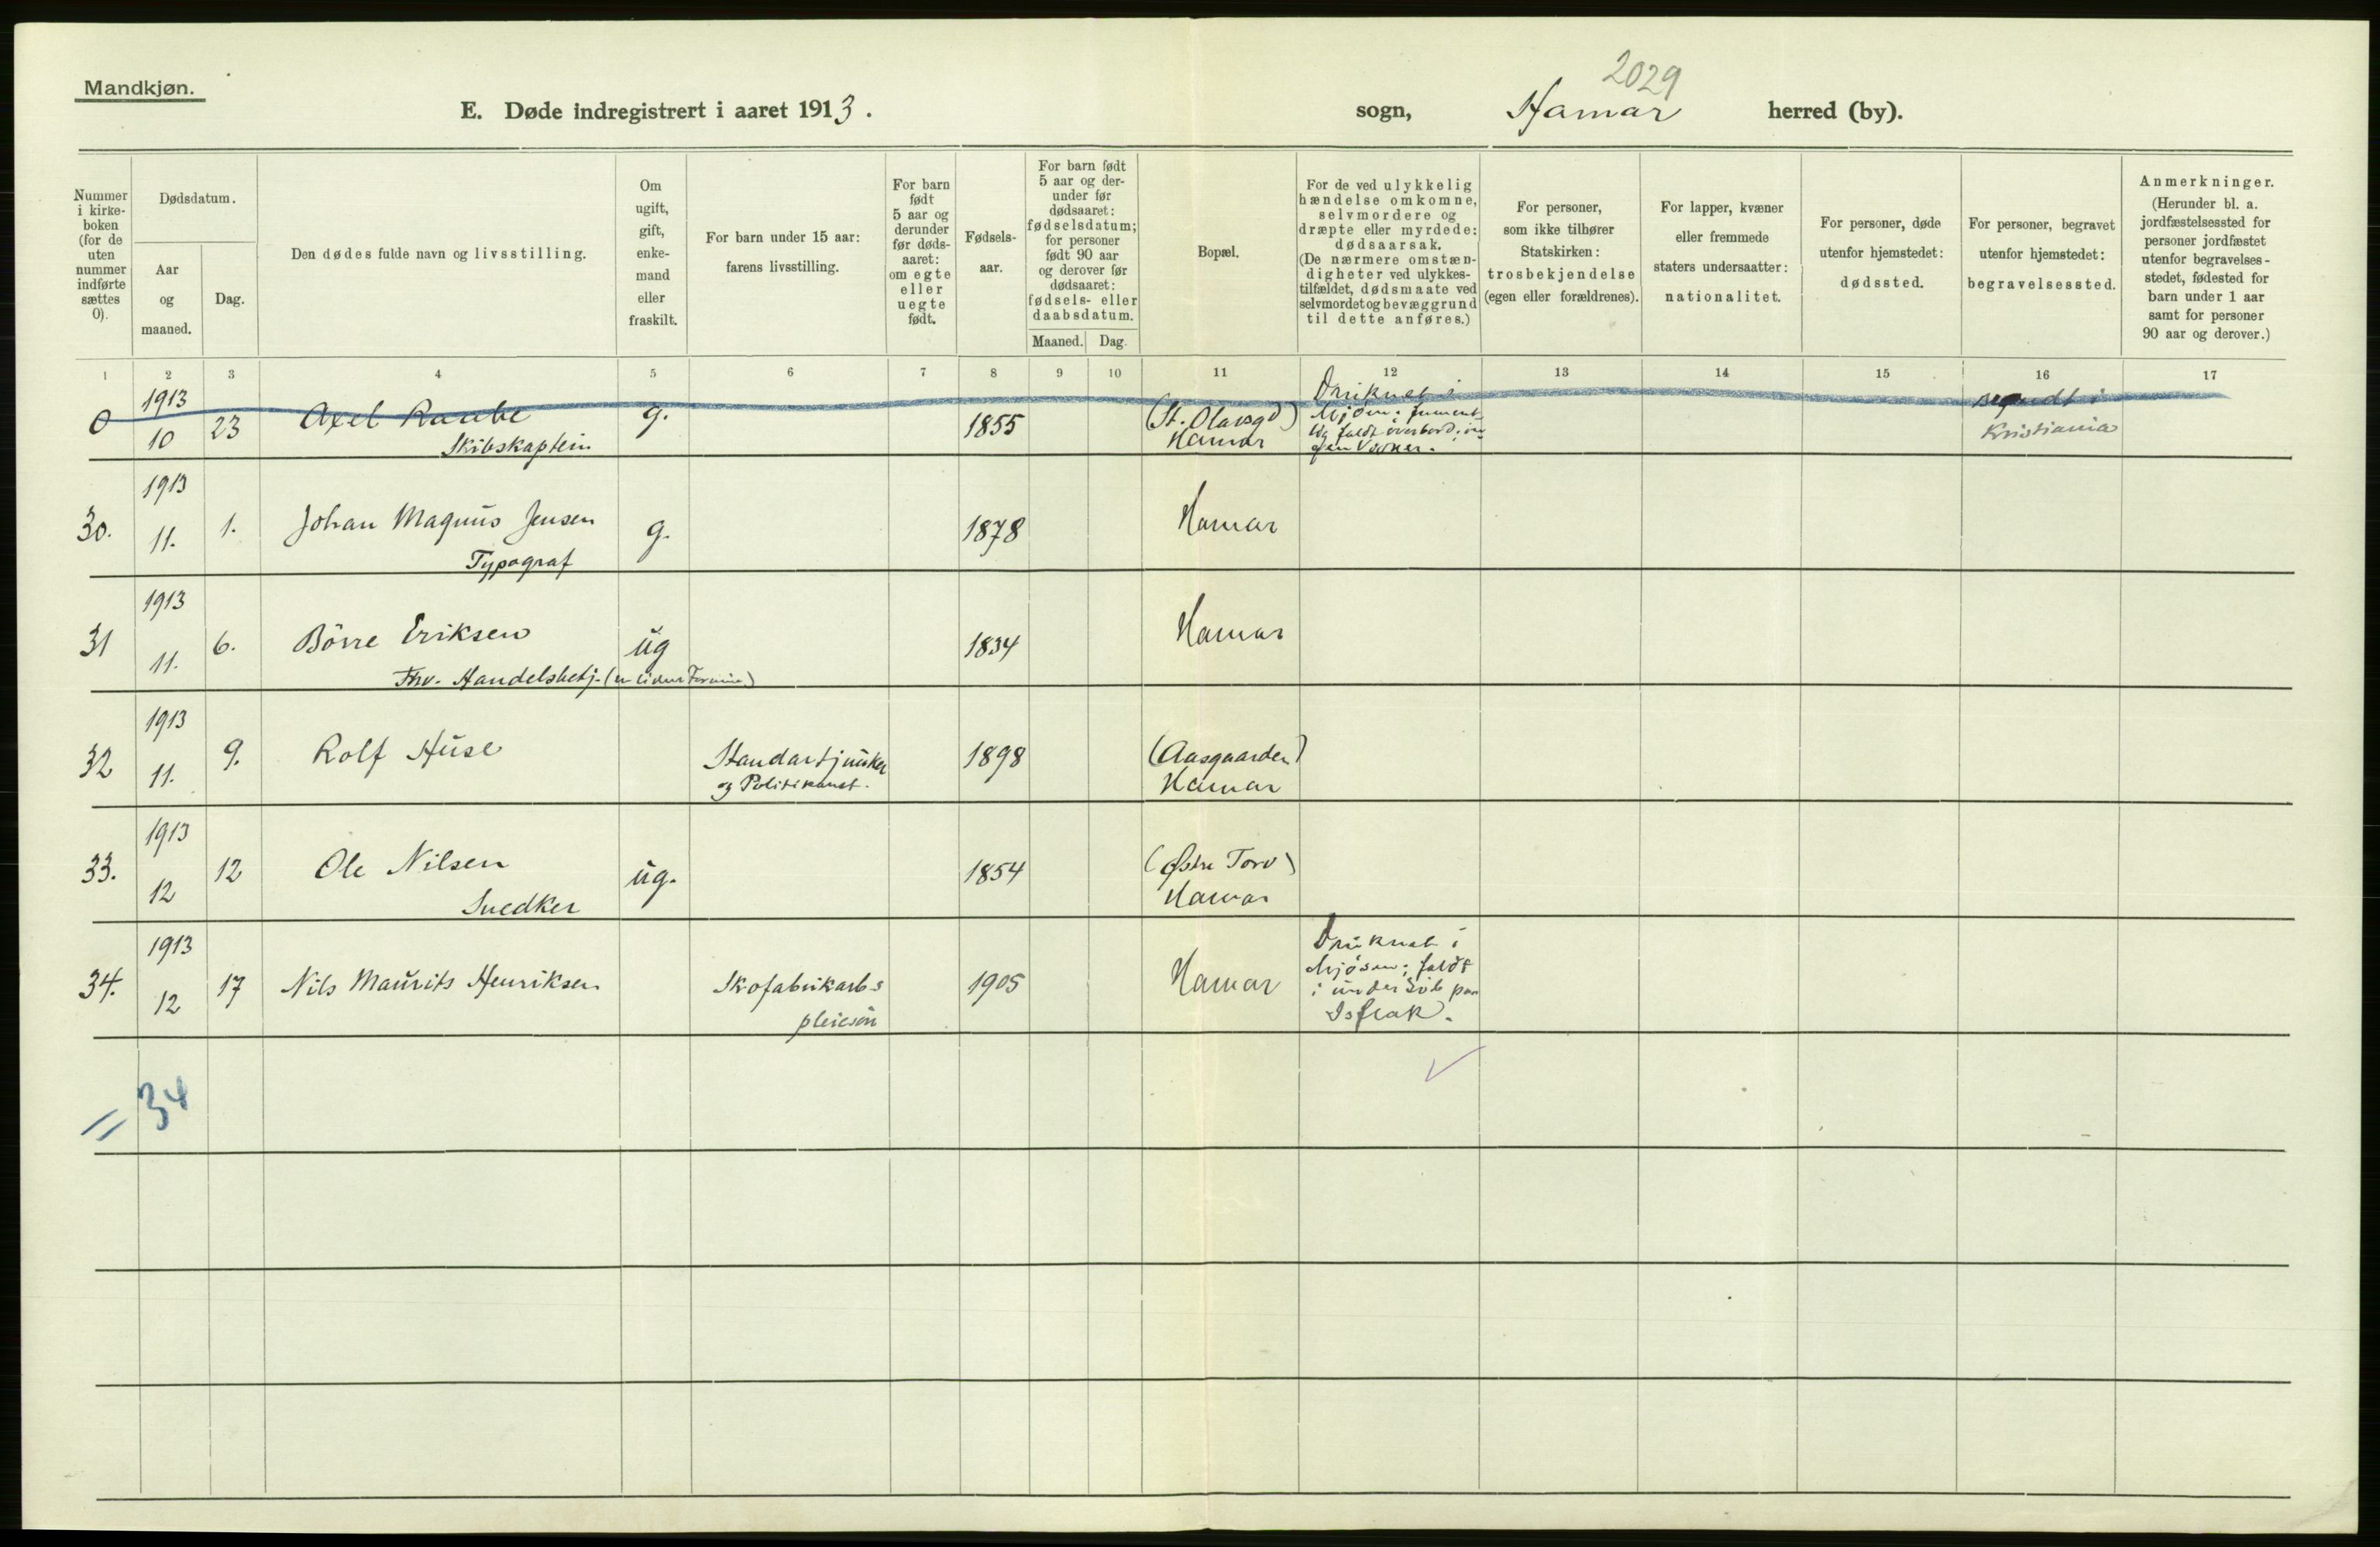 Mandkjøn.
2029
E. Døde indregistrert i aaret 1913.
sogn, Hamar herred (by).
Nummer
i kirke-
boken
(for de
uten
nummer
indførte
sættes
0).
Dødsdatum.
Aar
og
maaned.
Dag.
Den dødes fulde navn og livsstilling.
Om
ugift,
gift,
enke-
mand
eller
fraskilt.
For barn under 15 aar:
farens livsstilling.
For barn
født
5 aar og
derunder
før døds-
aaret:
om egte
eller
uegte
født.
Fødsels-
aar.
For barn født
5 aar og der-
under før
dødsaaret:
fødselsdatum;
for personer
født 90 aar
og derover før
dødsaaret:
fødsels- eller
daabsdatum.
Maaned. Dag.
Bopæl.
For de ved ulykkelig
hændelse omkomne,
selvmordere og
dræpte eller myrdede:
dødsaarsak.
(De nærmere omstæn-
digheter ved ulykkes-
tilfældet, dødsmaate ved
selvmordet og bevæggrund
til dette anføres.)
For personer,
som ikke tilhører
Statskirken:
trosbekjendelse
(egen eller forældrenes).
For lapper, kvæner
eller fremmede
staters undersaatter:
nationalitet.
For personer, døde
utenfor hjemstedet:
dødssted.
For personer, begravet
utenfor hjemstedet:
begravelsessted.
Anmerkninger.
(Herunder bl. a.
jordfæstelsessted for
personer jordfæstet
utenfor begravelses-
stedet, fødested for
barn under 1 aar
samt for personer
90 aar og derover.)
1 2 3 4 5 6 7 8 9 10 11 12 13 14 15 16 17
0
1913
10
23
Axel Raabe
Skibskaptein
g.
1855
(St. Olavsgd)
Hamar
Druknet i
Mjøsen;
faldt overbord; in-
gen Vidner.
Kristiania
30.
1913
11.
1.
Johan Magnus Jensen
Typograf
g.
1878
Hamar
31
1913
11.
6.
Börre Eriksen
Fhv. Handelsbetj.
ug
1834
Hamar
32
1913
11.
9.
Rolf Huse
Standartjunker
og Politikonst.
1898
(Aasgaarden)
Hamar
33.
1913
12
12
Ole Nilsen
Snedker
ug.
1854
(Østre Torv)
Hamar
34.
1913
12
17
Nils Maurits Henriksen
Skofabrikarb.s
pleiesön
1905
Hamar
Druknet i
Mjösen; faldt
i under Löb paa
Isflak.
= 34